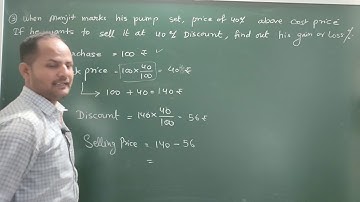 ③ When Manjit marks his pump set, price of 40% above cost price
If he wants to sell it at 40% Discount, find out his gain or loss%.
rchase = 100 ₹ ✓
price = 100×40/100 = 40₹
↳ 100 + 40 = 140 ₹
Discount = 140×40/100 = 56 ₹
Selling Price = 140 - 56
=